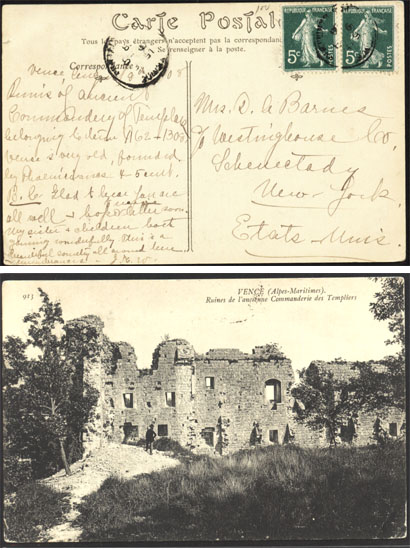 Carte Postale
Tous les pays étrangers n'acceptent pas la correspondance
Se renseigner à la poste.
Correspondance
5c 5c
POSTES POSTES
Vence
Ruins of ancient
Commandery of Templars
belonging to them 1162-1308
Vence very old, founded
by Phoenicians & 5 cent.
B.C. Glad to hear you are
all well & hope
my sister & children both
wonderfully this is a
beautiful country all around here
Mrs. D. A Barnes
c/o Westinghouse Co.
Schenectady
New-York.
Etats-Unis.
913
VENCE (Alpes-Maritimes).
Ruines de l'ancienne Commanderie des Templiers